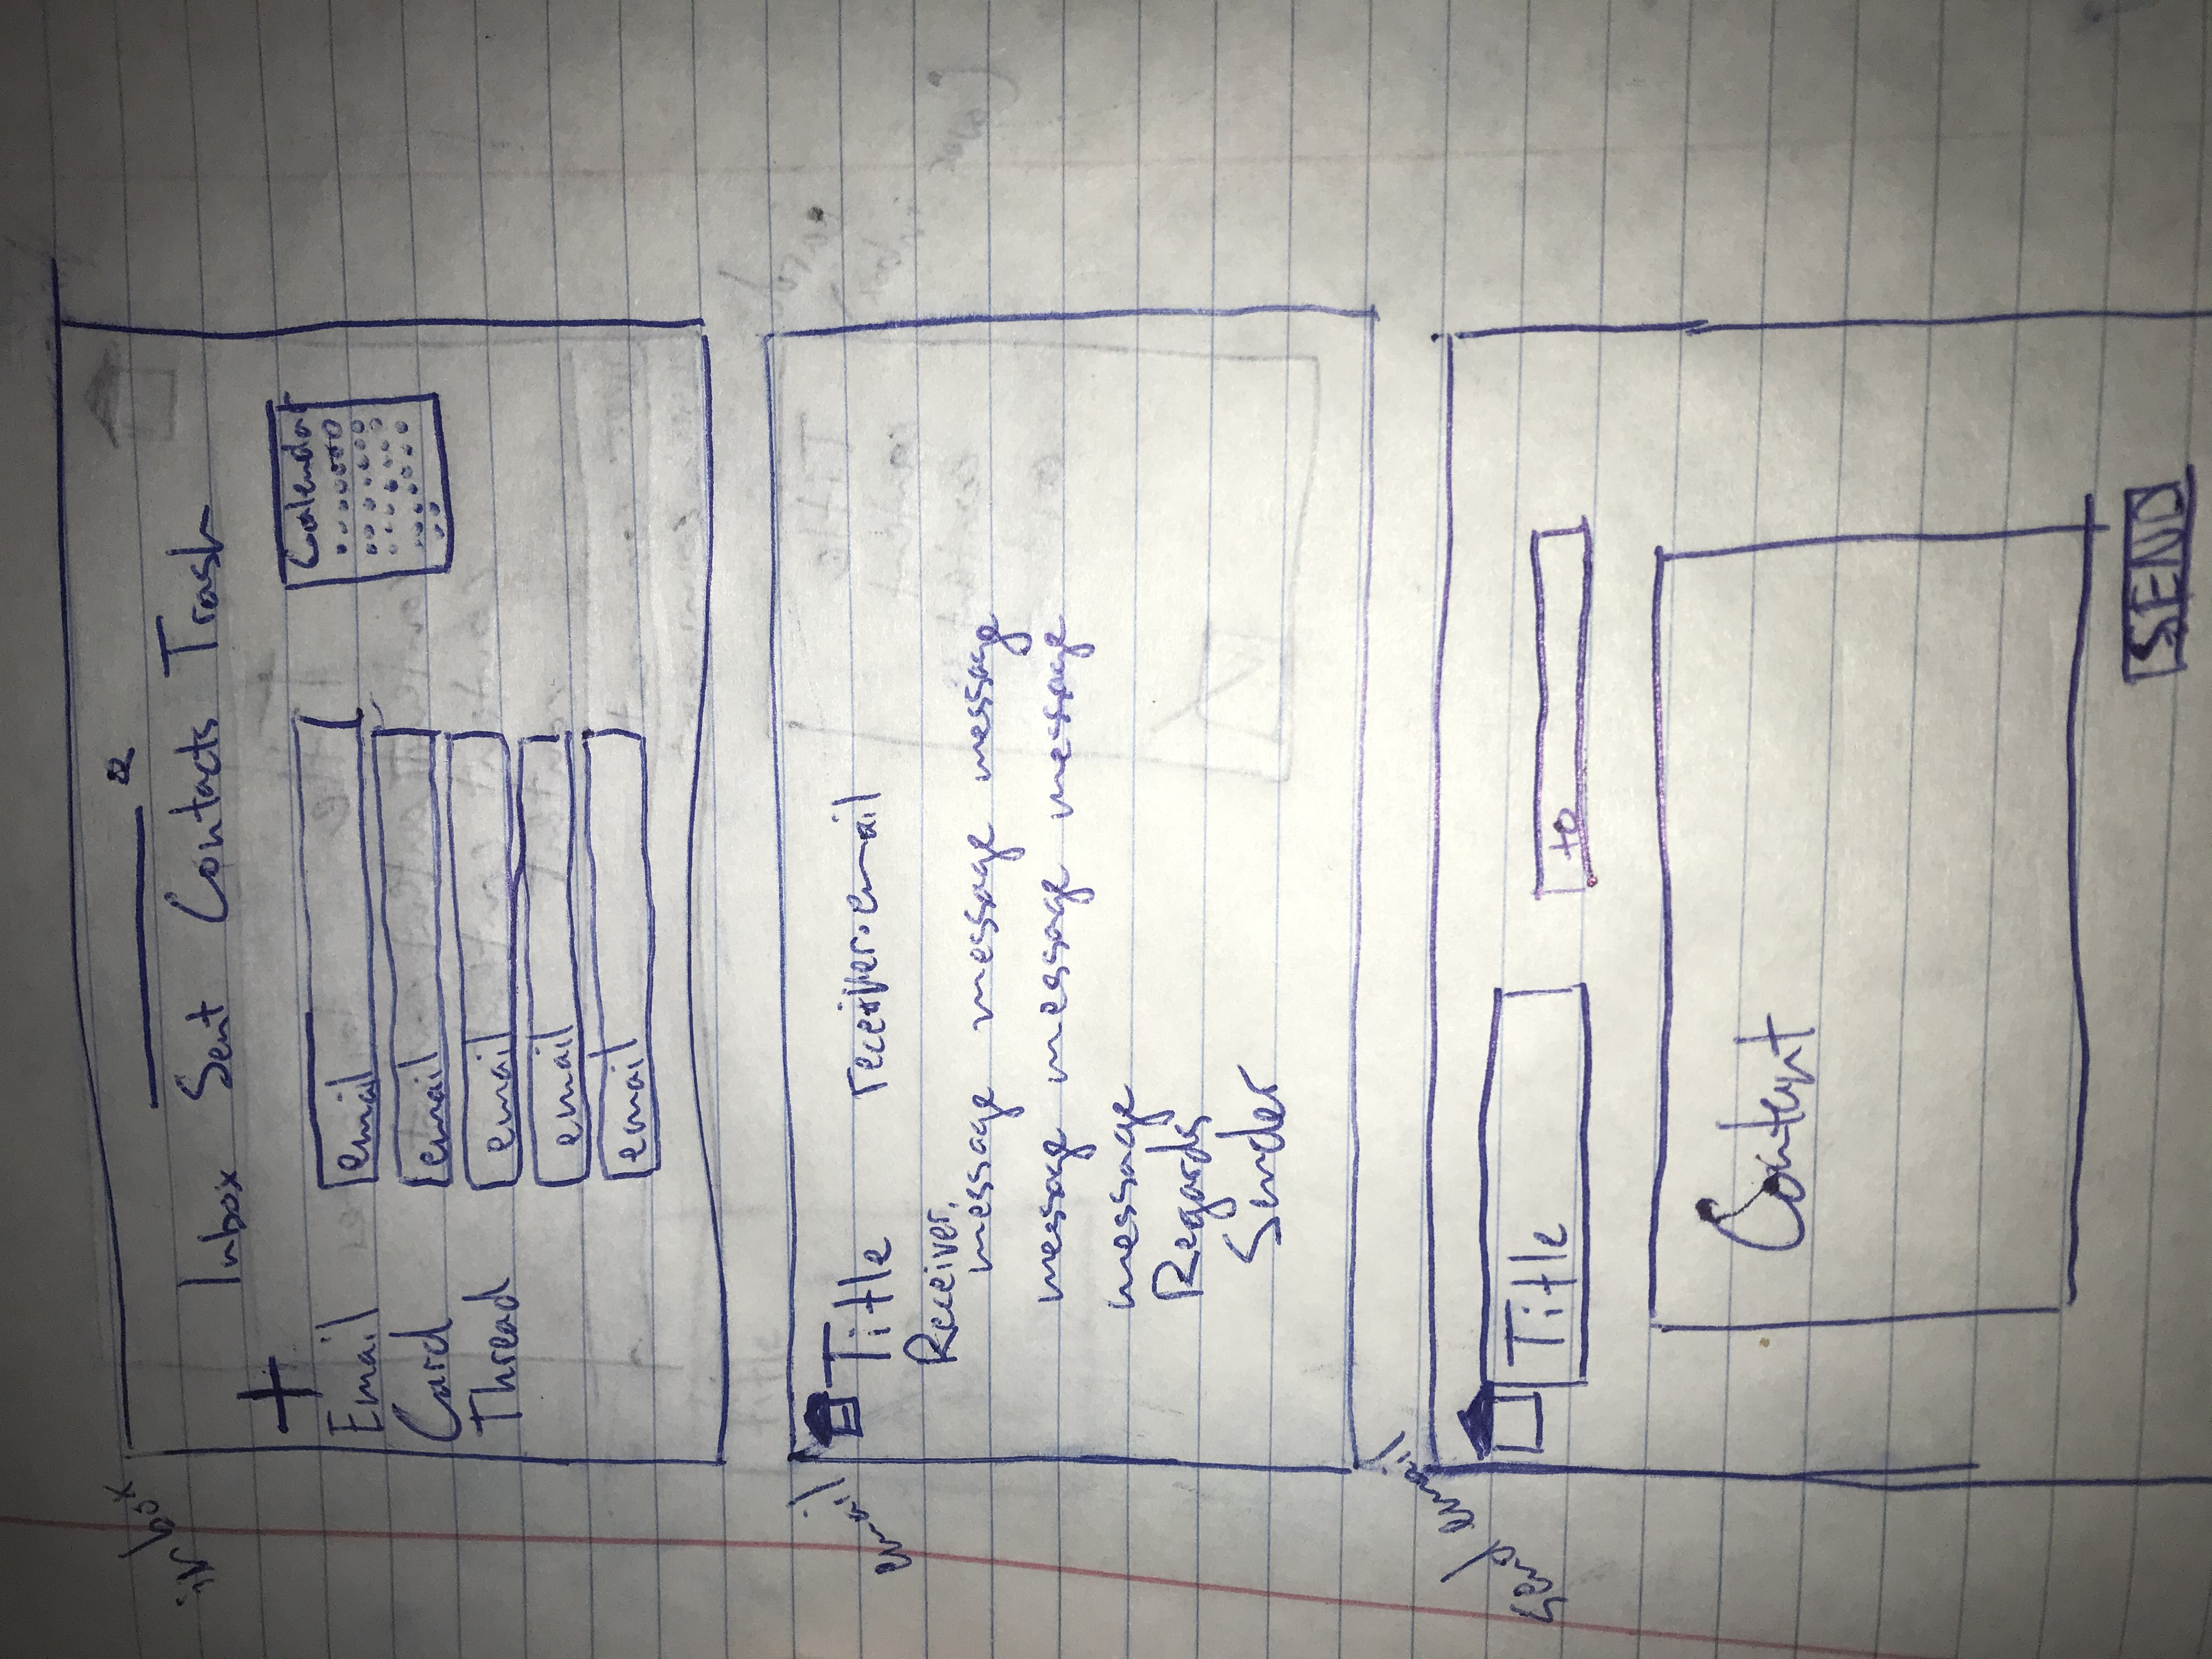 inbox
Inbox Sent Contacts Trash
Email
Card
Thread
email
email
email
email
email
Calendar
email
Title receiver.email
Receiver,
message message message
message message message
message
Regards
Sender
Send email
Title
to
Content
SEND